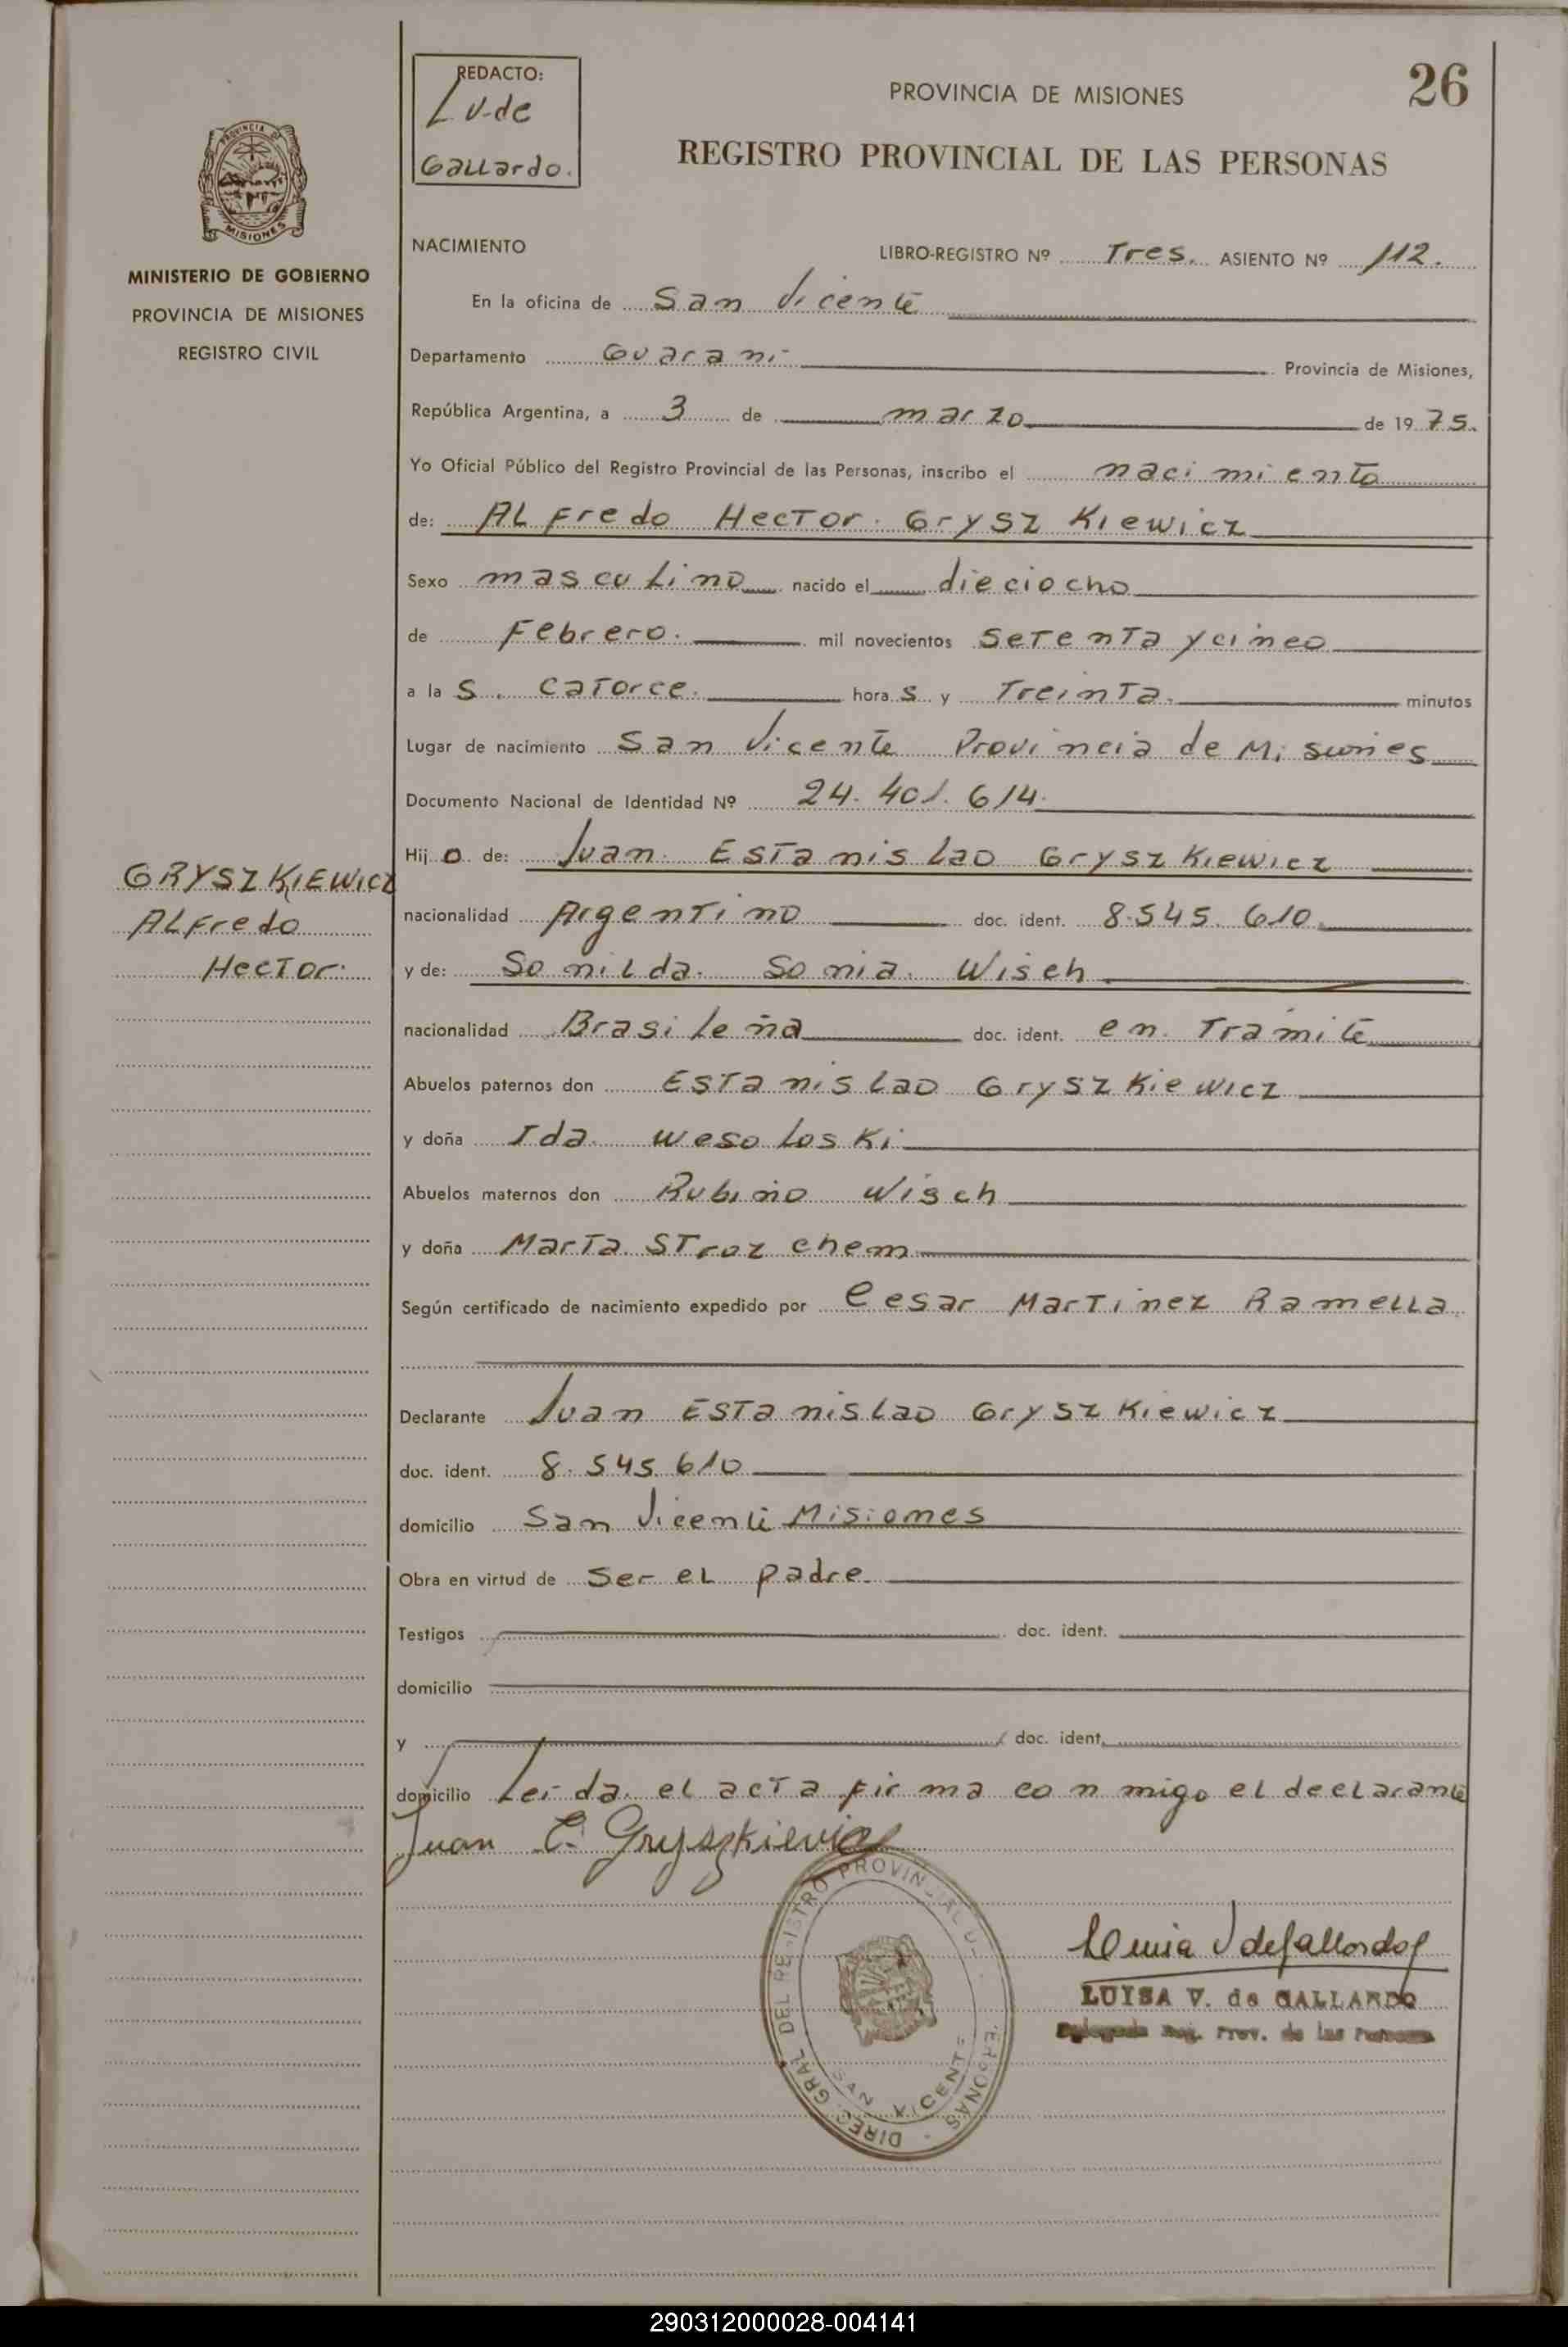 REDACTO:
L V. de
Gallardo.
PROVINCIA DE MISIONES
26
REGISTRO PROVINCIAL DE LAS PERSONAS
PROVINCIA DE
MISIONES
MINISTERIO DE GOBIERNO
PROVINCIA DE MISIONES
REGISTRO CIVIL
NACIMIENTO LIBRO-REGISTRO Nº Tres. ASIENTO Nº 112.
En la oficina de San Vicente
Departamento Guarani Provincia de Misiones,
República Argentina, a 3 de marzo de 1975.
Yo Oficial Público del Registro Provincial de las Personas, inscribo el nacimiento
de: Alfredo Hector Gryszkiewicz
Sexo masculino nacido el dieciocho
de Febrero. mil novecientos setenta y cinco
a las catorce. horas y treinta. minutos
Lugar de nacimiento San Vicente Provincia de Misiones
Documento Nacional de Identidad Nº 24.401.614.
Hijo de: Juan Estanislao Gryszkiewicz
GRYSZKIEWICZ
Alfredo
Hector.
nacionalidad Argentino doc. ident. 8.545.610.
y de: Sonilda Sonia Wisch
nacionalidad Brasileña doc. ident. en Tramite
Abuelos paternos don Estanislao Gryszkiewicz
y doña Ida Wesoloski
Abuelos maternos don Rubino Wisch
y doña Marta
Según certificado de nacimiento expedido por Cesar Martinez Ramella
Declarante Juan Estanislao Gryszkiewicz
doc. ident. 8.545.610
domicilio San Vicente Misiones
Obra en virtud de ser el padre
Testigos doc. ident.
domicilio
y doc. ident.
domicilio Leida el acta firma conmigo el declarante
Juan E. Gryszkievicz
DIREC. GRAL DEL REGISTRO PROVINCIAL
PERSONAS
SAN VICENTE
Luisa V de Gallardo
LUISA V. de GALLARDO
Delegada Reg. Prov. de las Personas
290312000028-004141